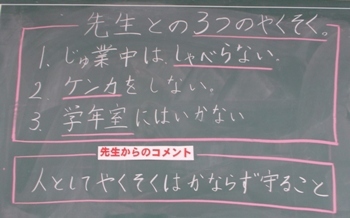 先生との3つのやくそく。
1. じゅ業中は、しゃべらない。
2. ケンカをしない。
3. 学年室にはいかない
先生からのコメント
人としてやくそくはかならず守ること